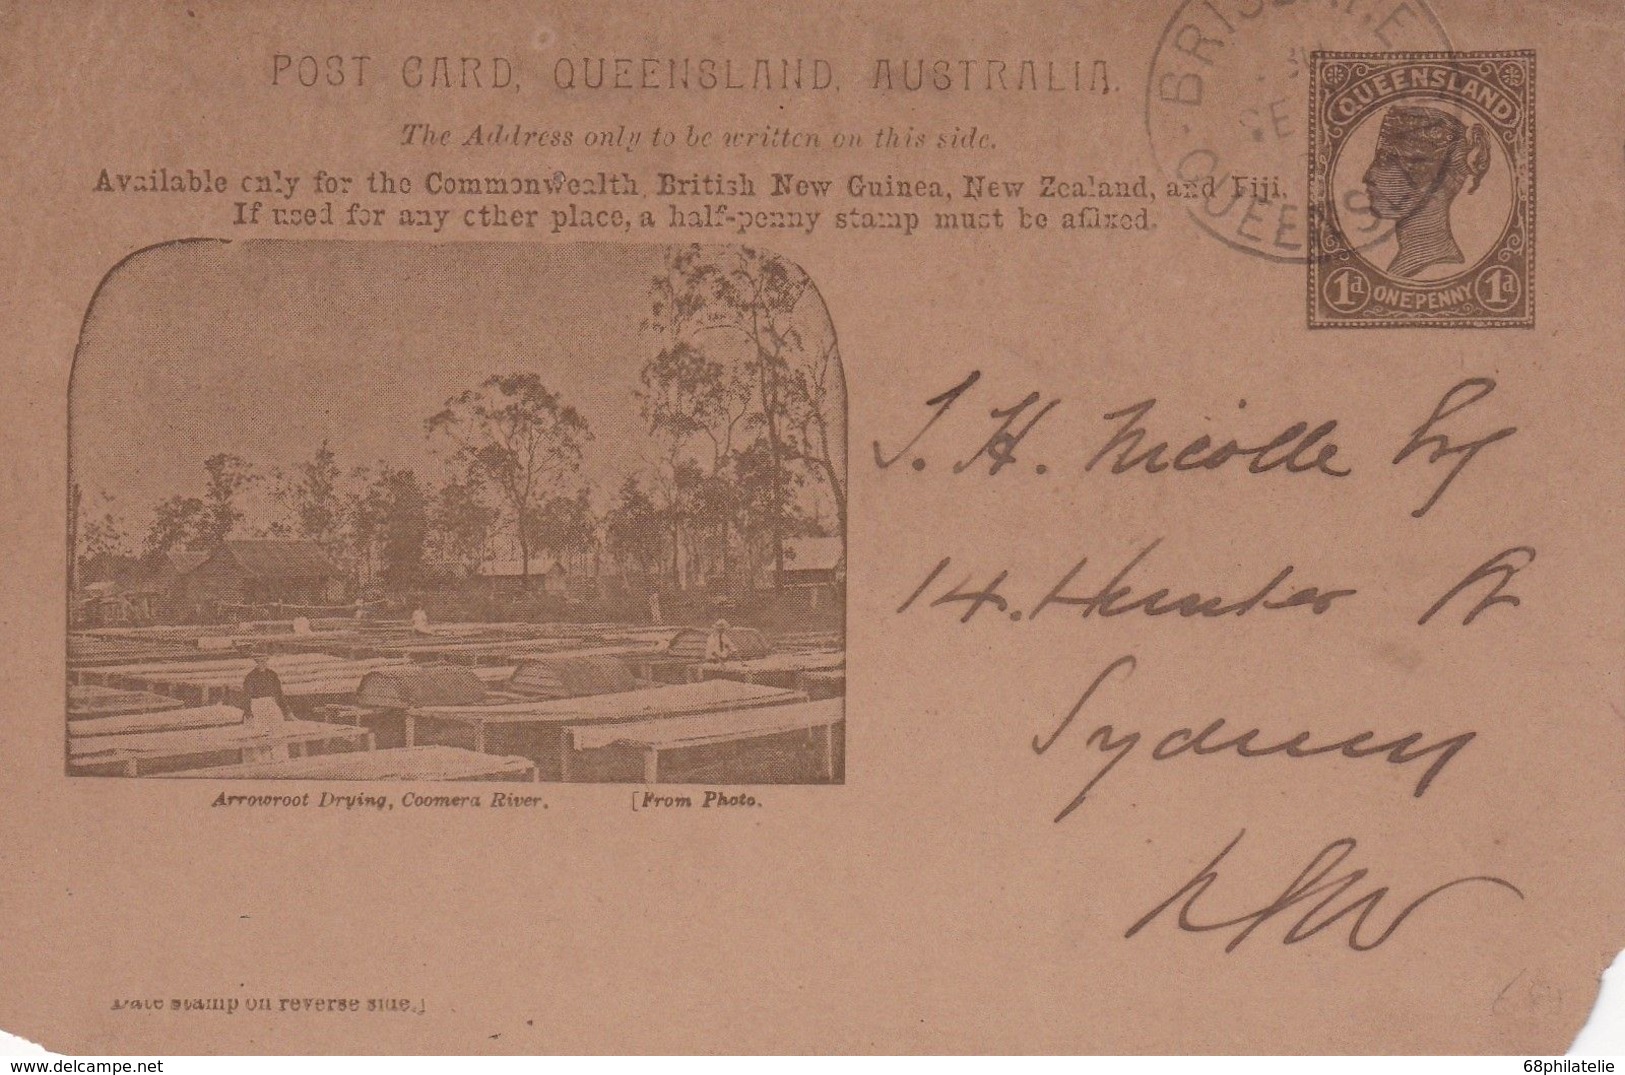 POST CARD, QUEENSLAND, AUSTRALIA.
The Address only to be written on this side.
Available only for the Commonwealth, British New Guinea, New Zealand, and Fiji.
If used for any other place, a half-penny stamp must be affixed.
BRISBANE
SE
QUEENSL
QUEENSLAND
1d ONE PENNY 1d
J. H. Nicolle Esq
14. Hunter St
Sydney
NSW
Arrowroot Drying, Coomera River. [From Photo.
Date stamp on reverse side.]
www.delcampe.net
68philatelie